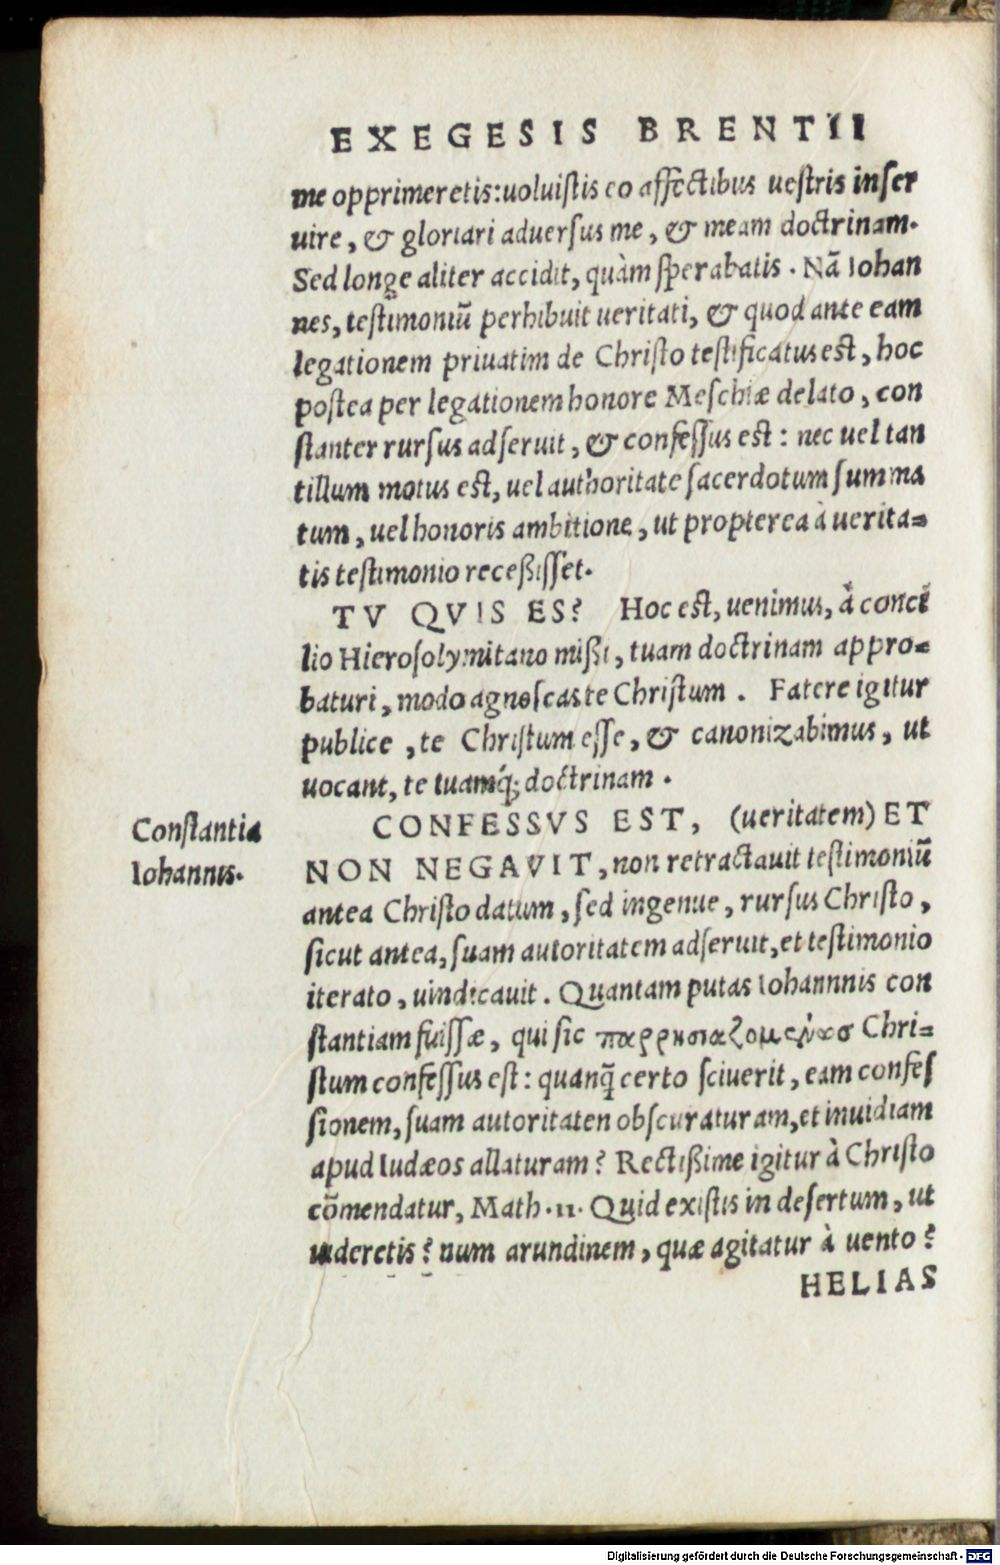 EXEGESIS BRENTII
me opprimeretis: uoluistis eo affectibus uestris inser
uire, & gloriari aduersus me, & meam doctrinam.
Sed longe aliter accidit, quàm sperabatis. Nā Iohan
nes, testimoniū perhibuit ueritati, & quod ante eam
legationem priuatim de Christo testificatus est, hoc
postea per legationem honore Meschiæ delato, con
stanter rursus adseruit, & confessus est: nec uel tan
tillum motus est, uel authoritate sacerdotum summa
tum, uel honoris ambitione, ut propterea à uerita=
tis testimonio receßisset.
TV QVIS ES? Hoc est, uenimus, à conci
lio Hierosolymitano mißi, tuam doctrinam appro=
baturi, modo agnoscas te Christum. Fatere igitur
publice, te Christum esse, & canonizabimus, ut
uocant, te tuamq́; doctrinam.
Constantia
Iohannis.
CONFESSVS EST, (ueritatem) ET
NON NEGAVIT, non retractauit testimoniū
antea Christo datum, sed ingenue, rursus Christo,
sicut antea, suam autoritatem adseruit, et testimonio
iterato, uindicauit. Quantam putas Iohannnis con
stantiam fuissæ, qui sic παρρησιαζομενὼσ Chri=
stum confessus est: quanq̄ certo sciuerit, eam confes
sionem, suam autoritaten obscuraturam, et inuidiam
apud Iudæos allaturam? Rectißime igitur à Christo
cōmendatur, Math. 11. Quid existis in desertum, ut
uideretis? num arundinem, quæ agitatur à uento?
HELIAS
Digitalisierung gefördert durch die Deutsche Forschungsgemeinschaft - DFG